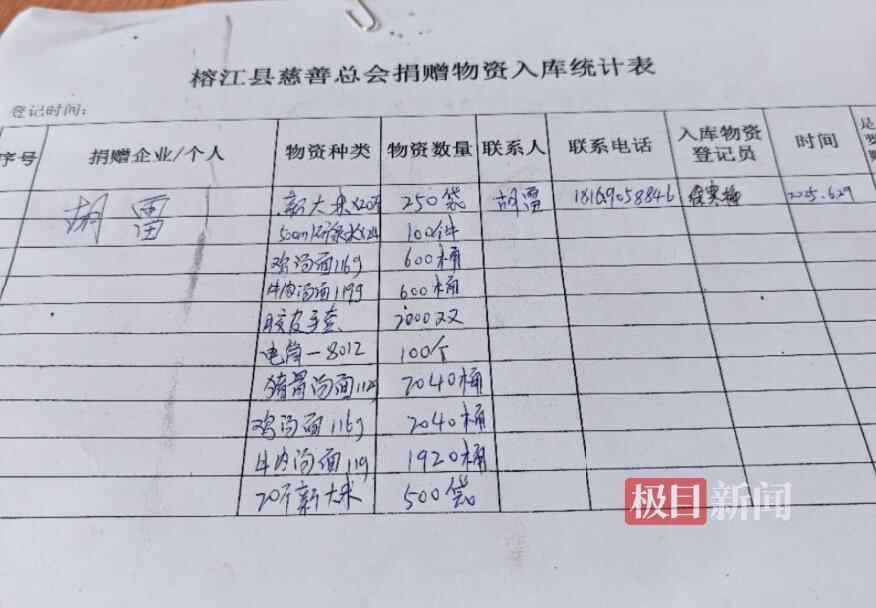 榕江县慈善总会捐赠物资入库统计表
登记时间:
序号 捐赠企业/个人 物资种类 物资数量 联系人 联系电话 入库物资登记员 时间
胡雷 新大米 250袋 胡雷 18169058846 2025.6.29
100件
鸡汤面116g 600桶
牛肉汤面119g 600桶
胶皮手套 2000双
电筒-8012 100个
猪骨汤面 2040桶
鸡汤面116g 2040桶
牛肉汤面119 1920桶
20斤新大米 500袋
极目新闻